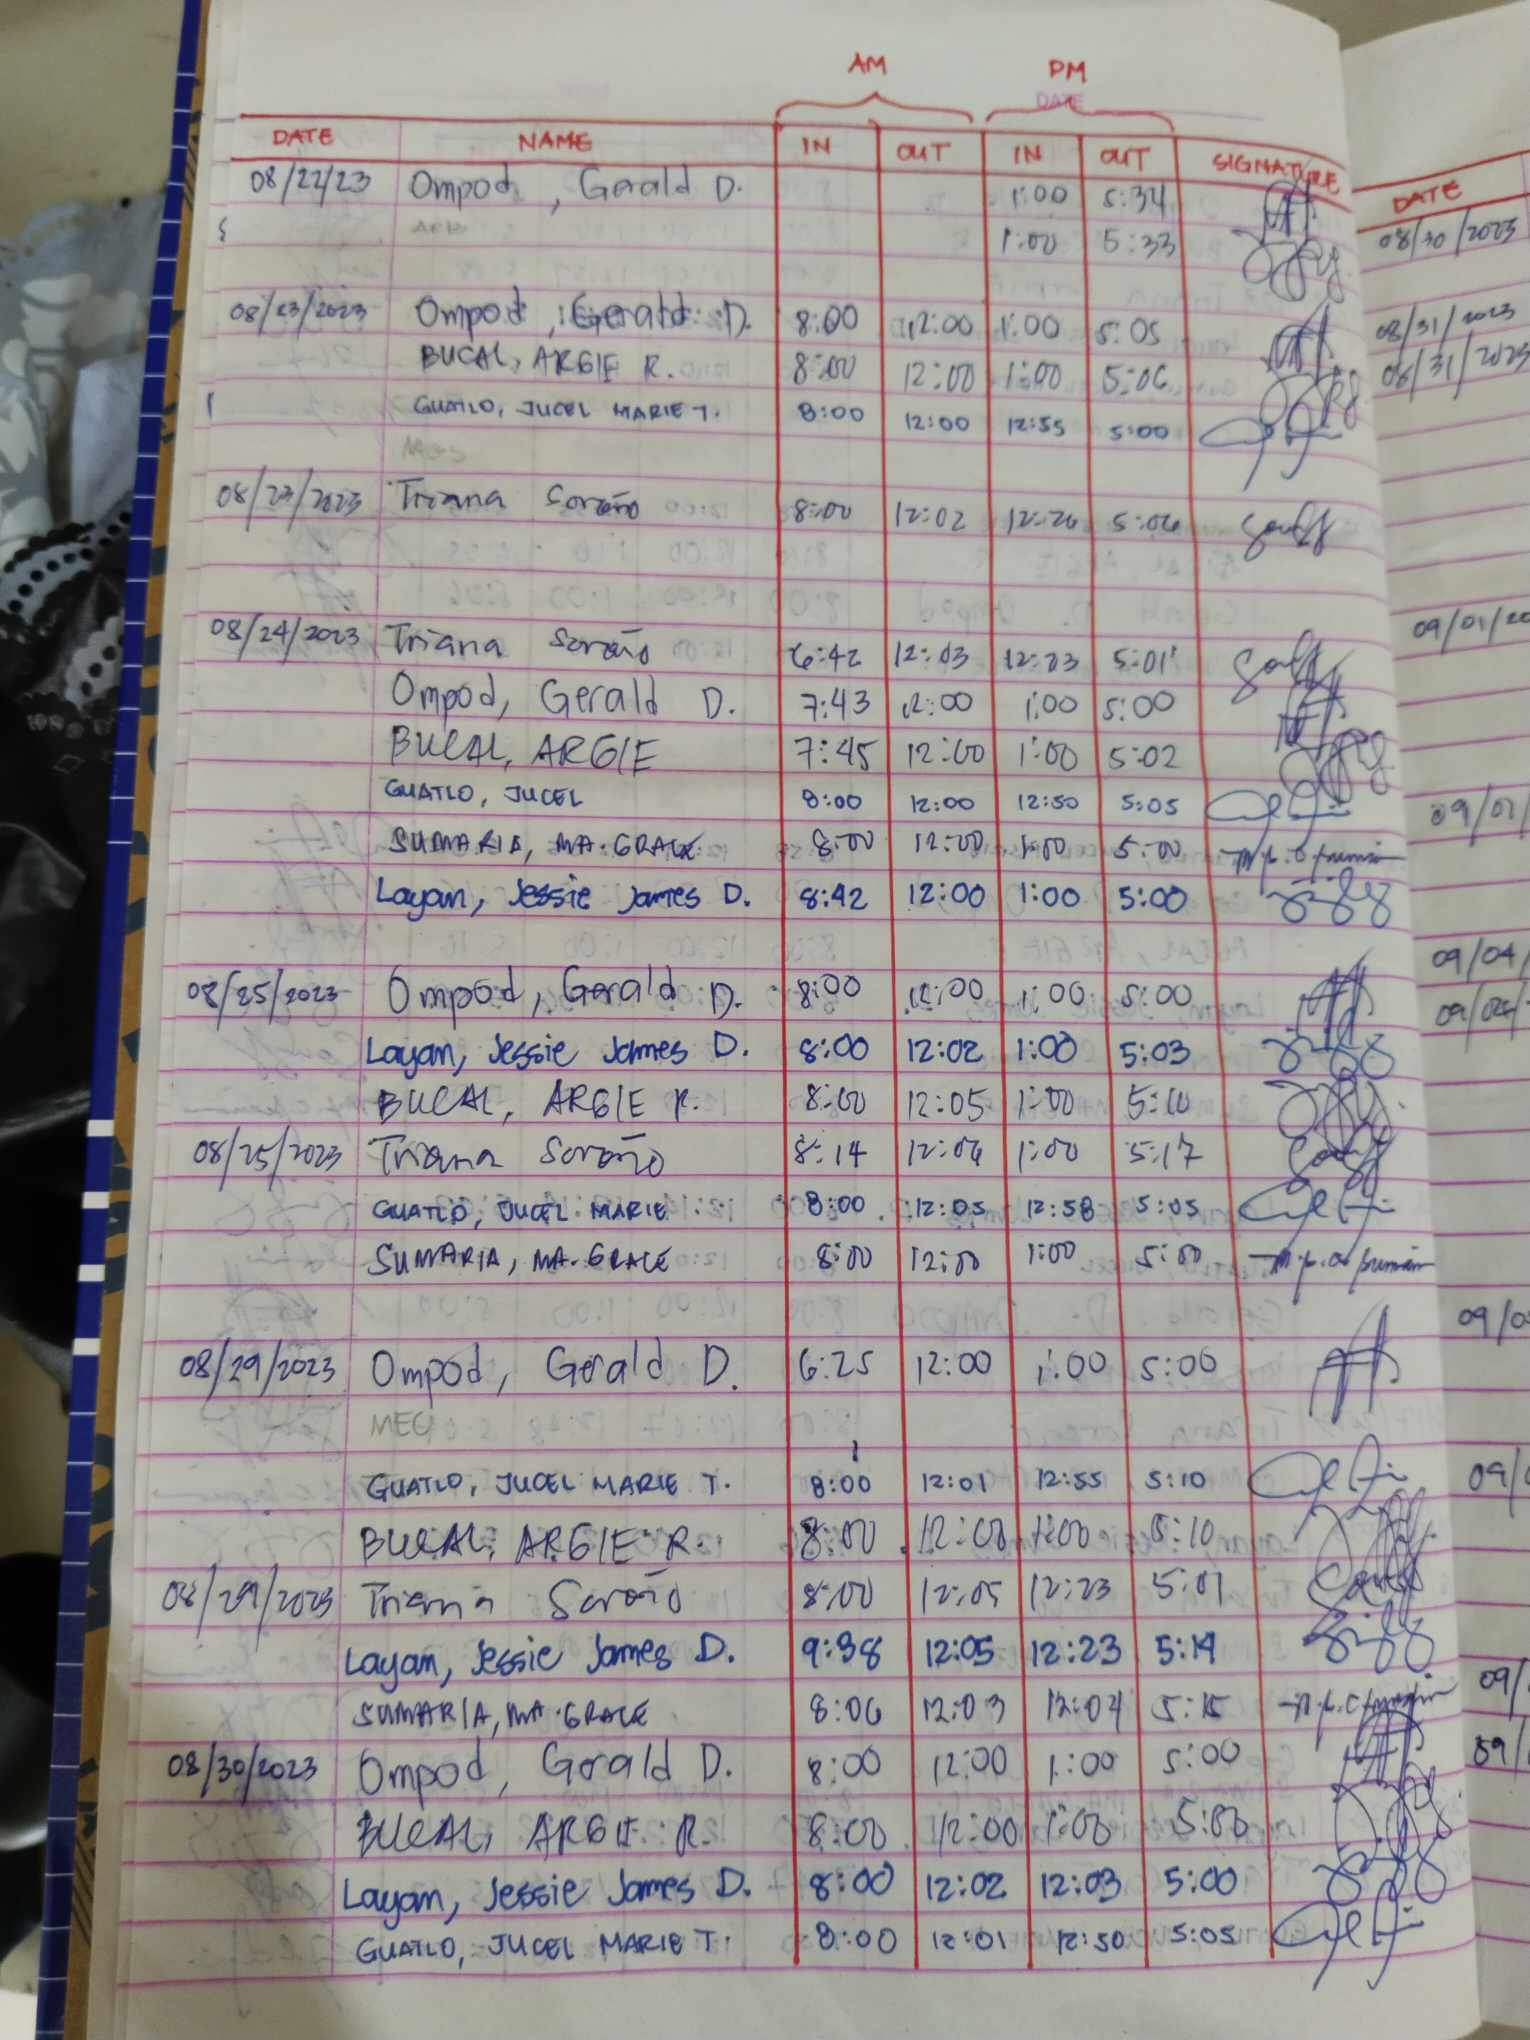 AM PM
DATE
DATE NAME IN OUT IN OUT SIGNATURE
08/22/23 Ompod, Gerald D. 1:00 5:34
1:00 5:33
08/23/2023 Ompod, Gerald D. 8:00 12:00 1:00 5:05
BUCAL, ARGIE R. 8:00 12:00 1:00 5:06
GUATLO, JUCEL MARIE T. 8:00 12:00 12:55 5:00
08/23/2023 Triana Soraño 8:00 12:02 12:26 5:06
08/24/2023 Triana Soraño 6:42 12:03 12:23 5:01
Ompod, Gerald D. 7:43 12:00 1:00 5:00
BUCAL, ARGIE 7:45 12:00 1:00 5:02
GUATLO, JUCEL 8:00 12:00 12:50 5:05
SUMARIA, MA. GRACE 8:00 12:00 1:00 5:00
Layam, Jessie James D. 8:42 12:00 1:00 5:00
08/25/2023 Ompod, Gerald D. 8:00 12:00 1:00 5:00
Layam, Jessie James D. 8:00 12:02 1:00 5:03
BUCAL, ARGIE R. 8:00 12:05 1:00 5:10
08/25/2023 Triana Soraño 8:14 12:06 1:00 5:17
GUATLO, JUCEL MARIE 8:00 12:05 12:58 5:05
SUMARIA, MA. GRACE 8:00 12:00 1:00 5:00
08/29/2023 Ompod, Gerald D. 6:25 12:00 1:00 5:00
MEG
GUATLO, JUCEL MARIE T. 8:00 12:01 12:55 5:10
BUCAL, ARGIE R. 8:00 12:00 1:00 5:10
08/29/2023 Triana Soraño 8:00 12:05 12:23 5:01
Layam, Jessie James D. 9:38 12:05 12:23 5:14
SUMARIA, MA. GRACE 8:06 12:03 12:04 5:15
08/30/2023 Ompod, Gerald D. 8:00 12:00 1:00 5:00
BUCAL, ARGIE R. 8:00 12:00 1:00 5:00
Layam, Jessie James D. 8:00 12:02 12:03 5:00
GUATLO, JUCEL MARIE T. 8:00 12:01 12:50 5:05
DATE
08/30/2023
08/31/2023
08/31/2023
09/01/20
09/01/
09/04/
09/04/